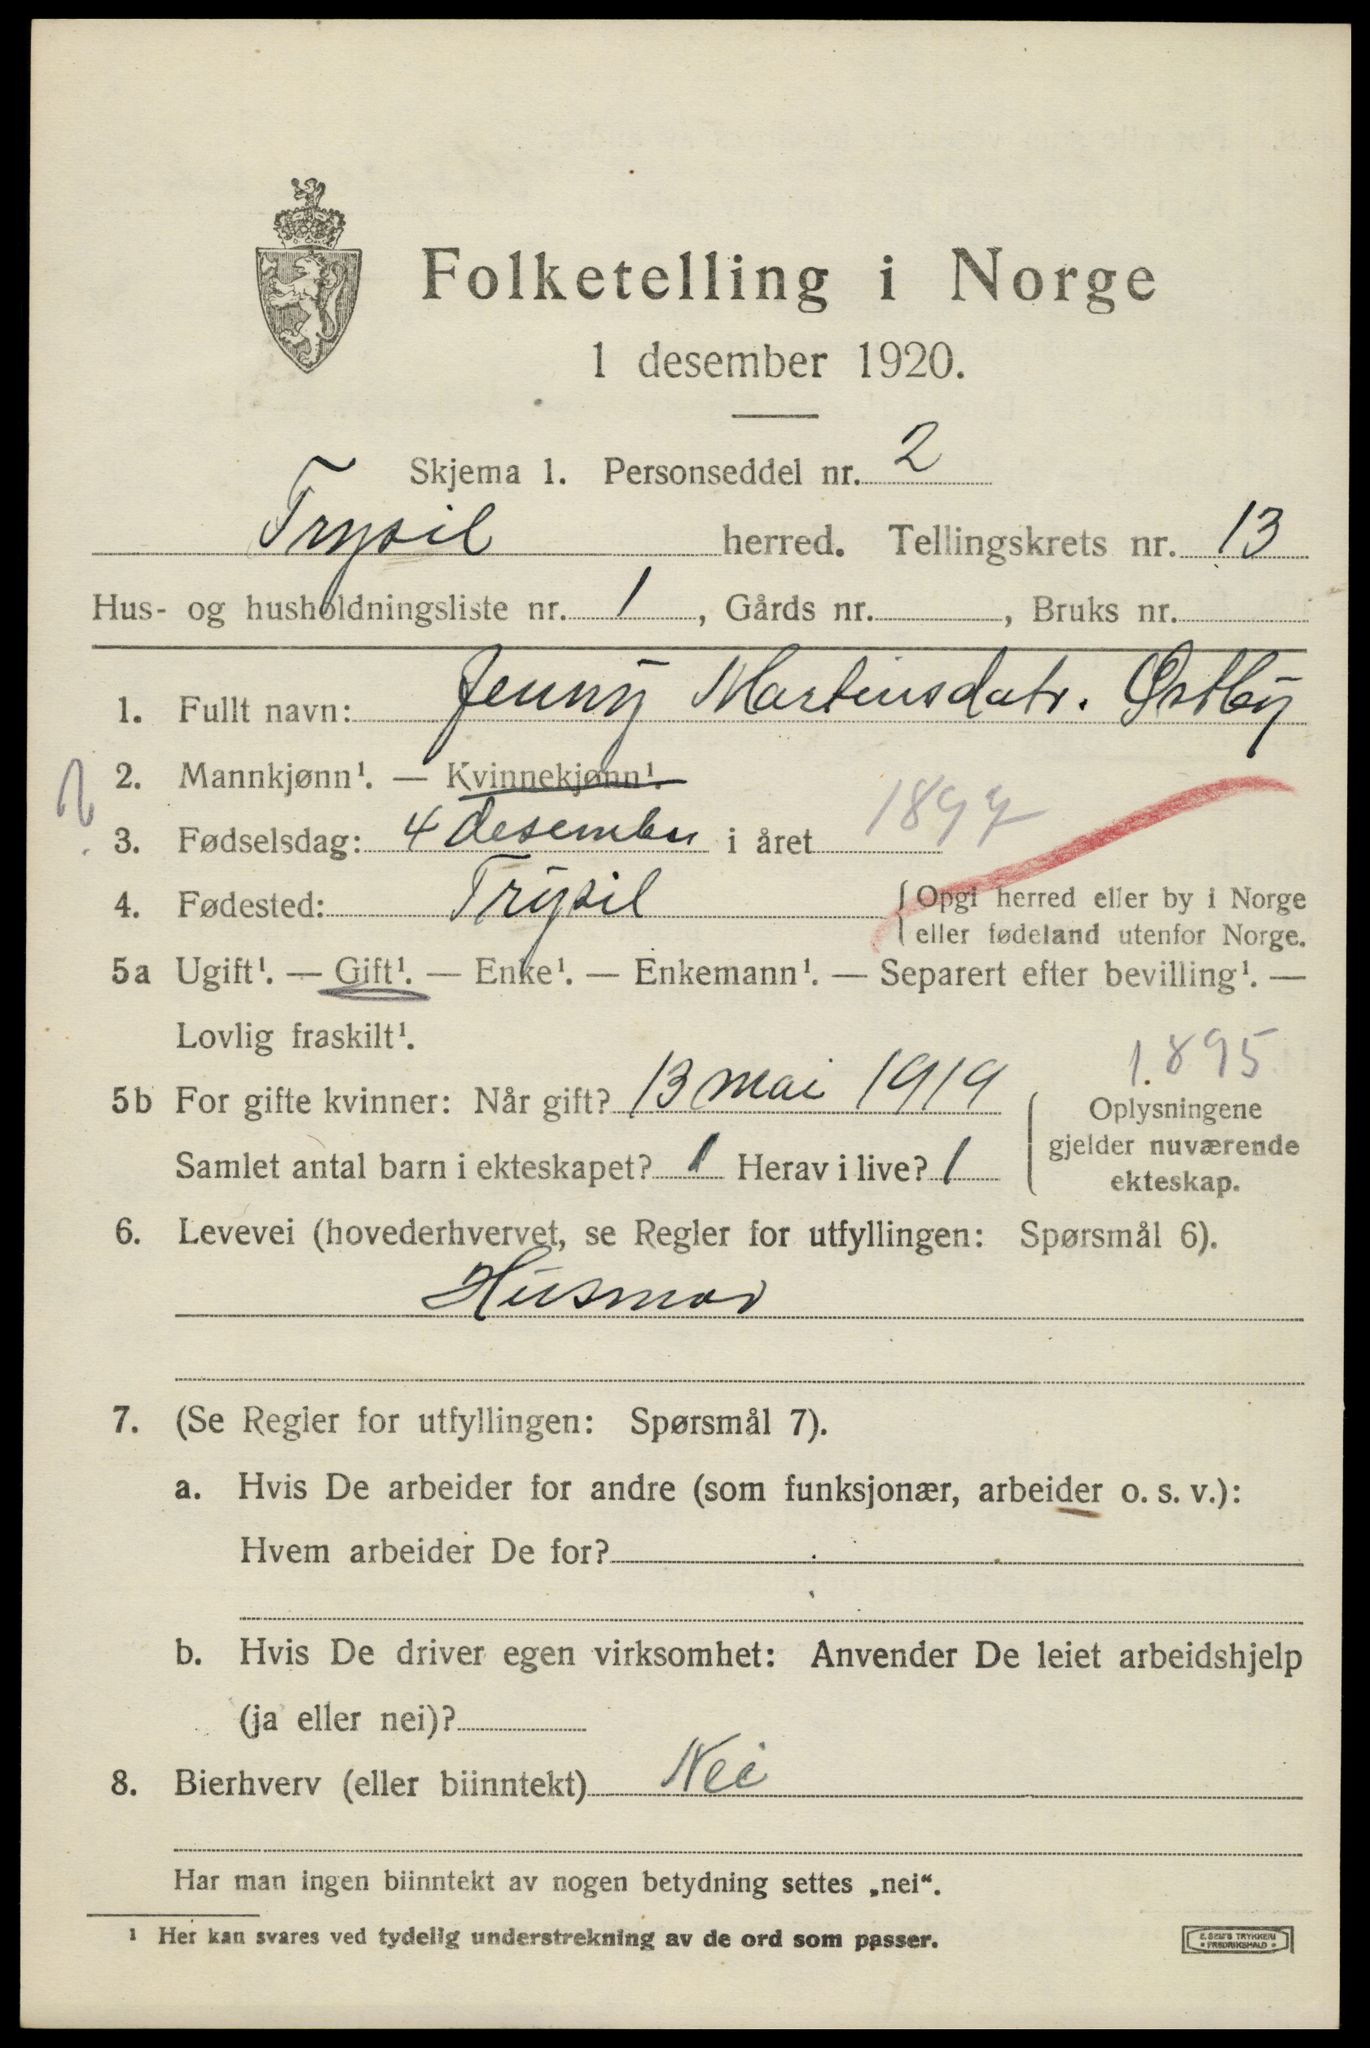 Folketelling i Norge
1 desember 1920.
Skjema 1. Personseddel nr. 2
Trysil herred. Tellingskrets nr. 13
Hus- og husholdningsliste nr. 1, Gårds nr. , Bruks nr.
1. Fullt navn: Jenny Martinsdatr. Østby
2. Mannkjønn¹. — Kvinnekjønn¹.
3. Fødselsdag: 4 desember i året 1897
4. Fødested: Trysil
{ Opgi herred eller by i Norge
eller fødeland utenfor Norge.
5a Ugift¹. — Gift¹. — Enke¹. — Enkemann¹. — Separert efter bevilling¹. —
Lovlig fraskilt¹.
1895
5b For gifte kvinner: Når gift? 13 mai 1919
Samlet antal barn i ekteskapet? 1 Herav i live? 1
{ Oplysningene
gjelder nuværende
ekteskap.
6. Levevei (hovederhvervet, se Regler for utfyllingen: Spørsmål 6).
Husmor
7. (Se Regler for utfyllingen: Spørsmål 7).
a. Hvis De arbeider for andre (som funksjonær, arbeider o. s. v.):
Hvem arbeider De for?
b. Hvis De driver egen virksomhet: Anvender De leiet arbeidshjelp
(ja eller nei)?
8. Bierhverv (eller biinntekt) Nei
Har man ingen biinntekt av nogen betydning settes „nei“.
¹ Her kan svares ved tydelig understrekning av de ord som passer.
E. SEM'S TRYKKERI
• FREDRIKSHALD •